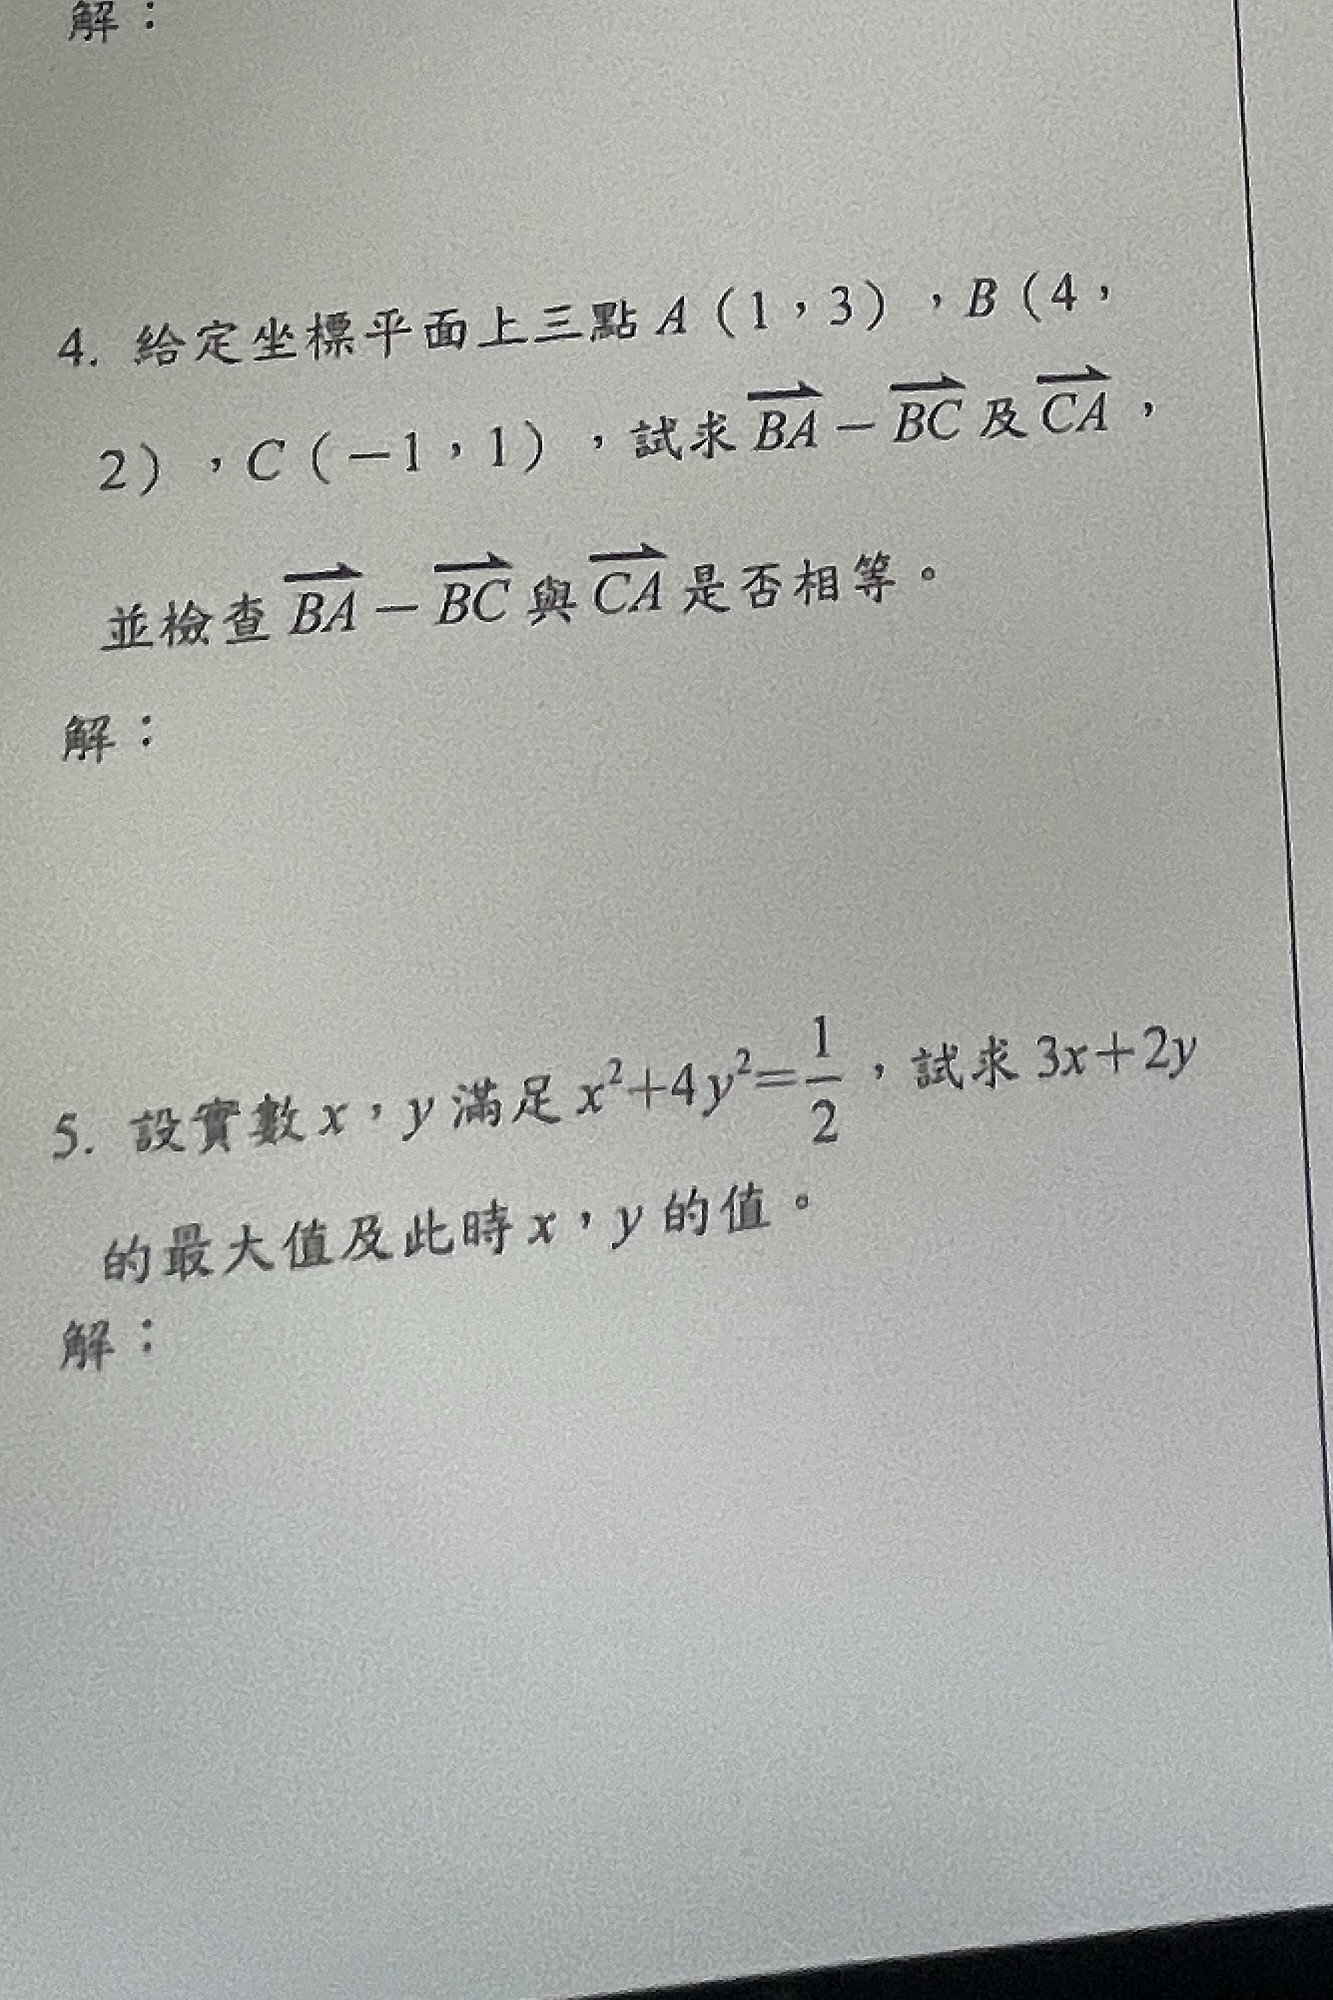 解：
4. 給定坐標平面上三點 A（1，3），B（4，
2），C（−1，1），試求 $\overrightarrow{BA}-\overrightarrow{BC}$ 及 $\overrightarrow{CA}$，
並檢查 $\overrightarrow{BA}-\overrightarrow{BC}$ 與 $\overrightarrow{CA}$ 是否相等。
解：
5. 設實數 x，y 滿足 $x^2+4y^2=\frac{1}{2}$，試求 3x+2y
的最大值及此時 x，y 的值。
解：